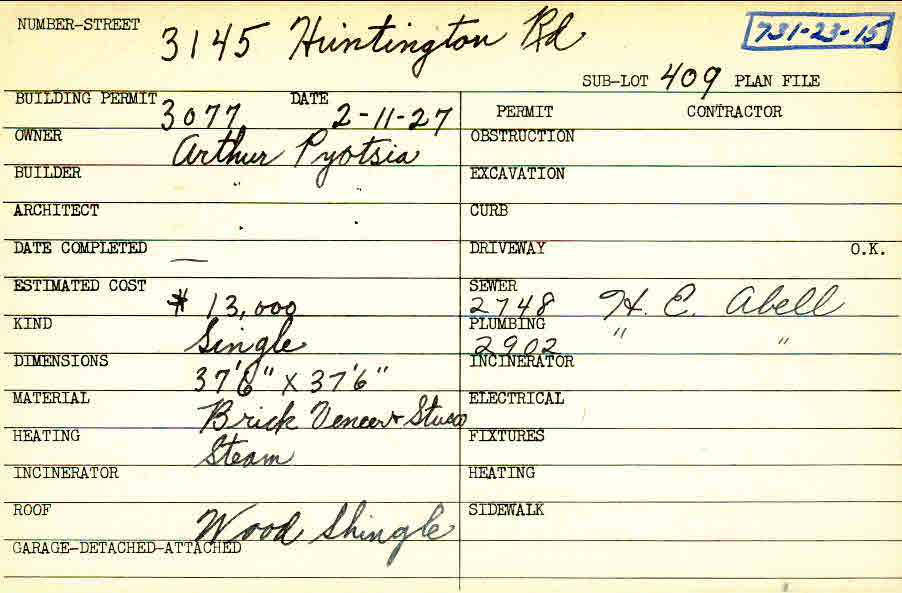 NUMBER-STREET 3145 Huntington Rd 731-23-15
SUB-LOT 409 PLAN FILE
BUILDING PERMIT 3077 DATE 2-11-27 PERMIT CONTRACTOR
OWNER Arthur Pyotsia OBSTRUCTION
BUILDER " " EXCAVATION
ARCHITECT CURB
DATE COMPLETED — DRIVEWAY O.K.
ESTIMATED COST $ 13,000 SEWER 2748 H. E. Abell
KIND Single PLUMBING 2902 " "
DIMENSIONS 37'6" X 37'6" INCINERATOR
MATERIAL Brick Veneer + Stucco ELECTRICAL
HEATING Steam FIXTURES
INCINERATOR HEATING
ROOF Wood Shingle SIDEWALK
GARAGE-DETACHED-ATTACHED